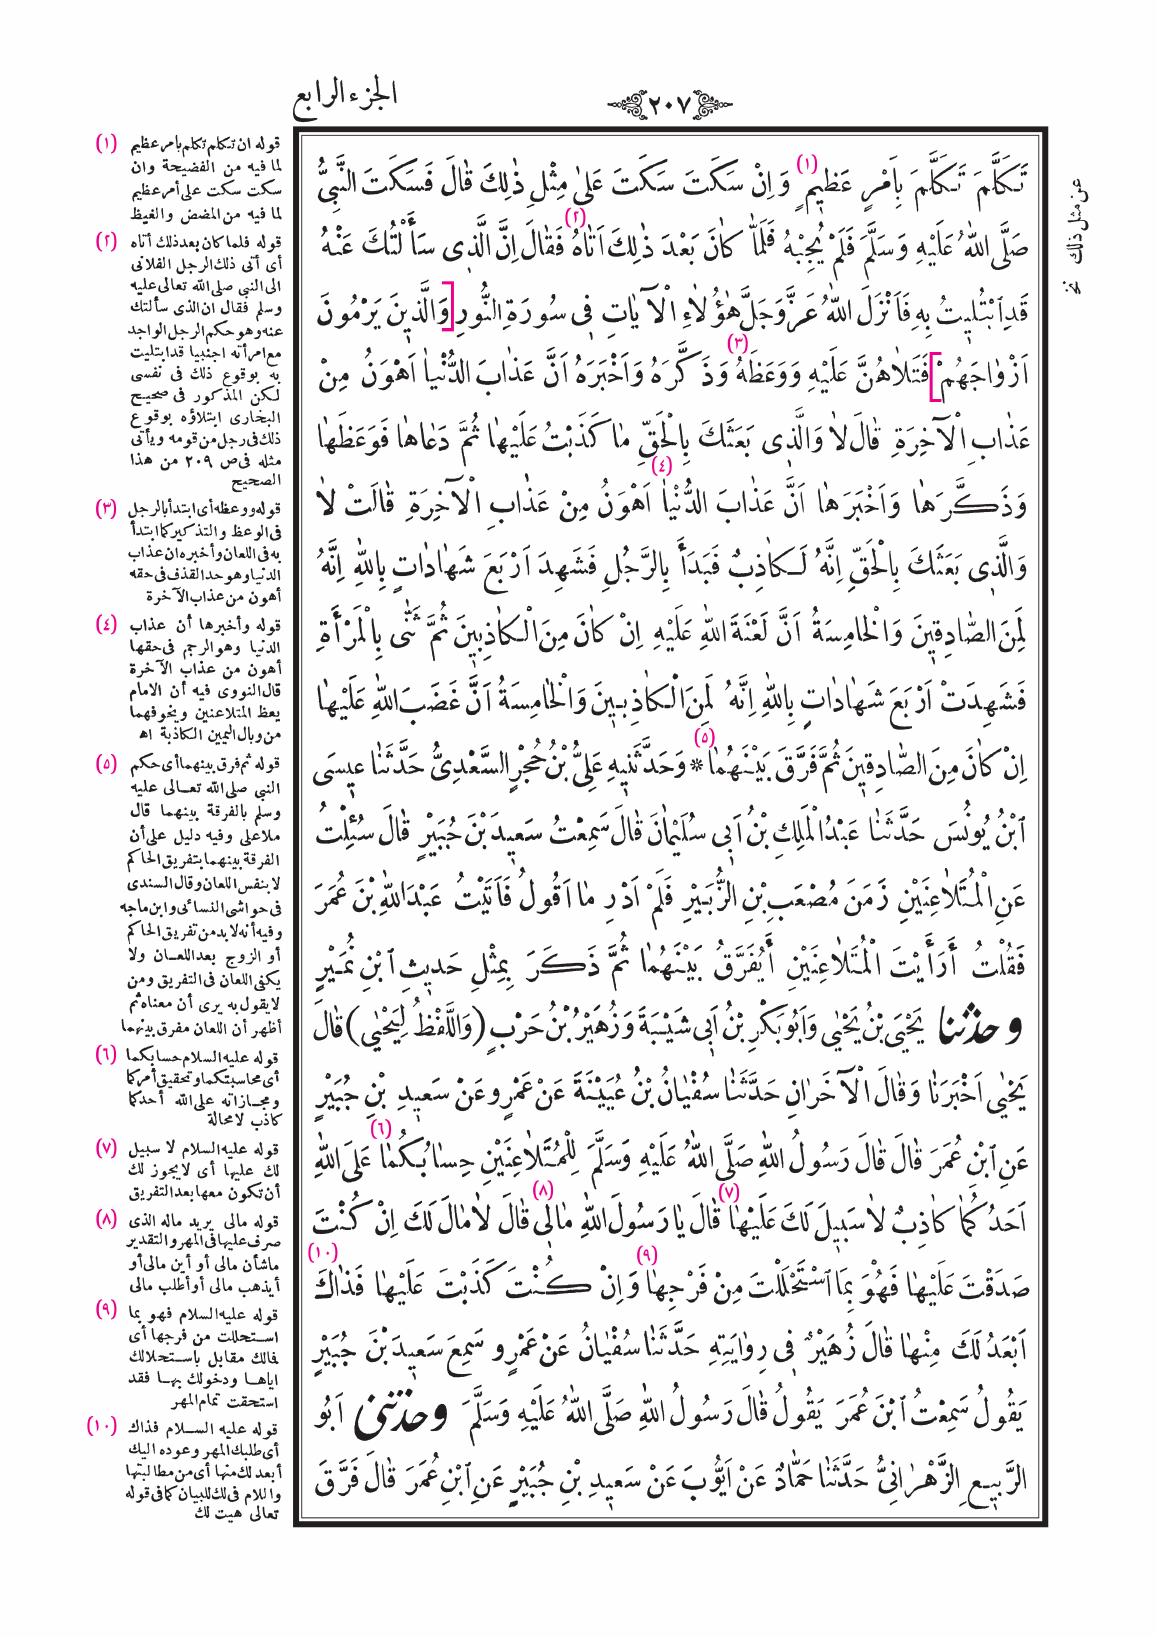 الجزء الرابع
٢٠٧
تَكَلَّمَ تَكَلَّمَ بِاَمْرٍ عَظِيمٍ (١) وَاِنْ سَكَتَ سَكَتَ عَلىٰ مِثْلِ ذٰلِكَ قٰالَ فَسَكَتَ النَّبِىُّ
صَلَّى اللّٰهُ عَلَيْهِ وَسَلَّمَ فَلَمْ يُجِبْهُ فَلَمّٰا كٰانَ بَعْدَ ذٰلِكَ اَتٰاهُ (٢) فَقٰالَ اِنَّ الَّذِى سَأَلْتُكَ عَنْهُ
قَدِ ٱبْتُلِيتُ بِهِ فَاَنْزَلَ اللّٰهُ عَزَّ وَجَلَّ هٰؤُلاٰءِ الْآيٰاتِ فِى سُورَةِ النُّورِ [وَالَّذِينَ يَرْمُونَ
اَزْوٰاجَهُمْ] فَتَلاٰهُنَّ عَلَيْهِ وَوَعَظَهُ (٣) وَذَكَّرَهُ وَاَخْبَرَهُ اَنَّ عَذٰابَ الدُّنْيٰا اَهْوَنُ مِنْ
عَذٰابِ الْآخِرَةِ قٰالَ لاٰ وَالَّذِى بَعَثَكَ بِالْحَقِّ مٰا كَذَبْتُ عَلَيْهٰا ثُمَّ دَعٰاهٰا فَوَعَظَهٰا
وَذَكَّرَهٰا وَاَخْبَرَهٰا اَنَّ عَذٰابَ الدُّنْيٰا (٤) اَهْوَنُ مِنْ عَذٰابِ الْآخِرَةِ قٰالَتْ لاٰ
وَالَّذِى بَعَثَكَ بِالْحَقِّ اِنَّهُ لَكٰاذِبٌ فَبَدَأَ بِالرَّجُلِ فَشَهِدَ اَرْبَعَ شَهٰادٰاتٍ بِاللّٰهِ اِنَّهُ
لَمِنَ الصّٰادِقِينَ وَالْخٰامِسَةُ اَنَّ لَعْنَةَ اللّٰهِ عَلَيْهِ اِنْ كٰانَ مِنَ الْكٰاذِبِينَ ثُمَّ ثَنّٰى بِالْمَرْأَةِ
فَشَهِدَتْ اَرْبَعَ شَهٰادٰاتٍ بِاللّٰهِ اِنَّهُ لَمِنَ الْكٰاذِبِينَ وَالْخٰامِسَةُ اَنَّ غَضَبَ اللّٰهِ عَلَيْهٰا
اِنْ كٰانَ مِنَ الصّٰادِقِينَ ثُمَّ فَرَّقَ بَيْنَهُمٰا (٥) * وَحَدَّثَنِيهِ عَلِىُّ بْنُ حُجْرٍ السَّعْدِىُّ حَدَّثَنٰا عِيسَى
ٱبْنُ يُونُسَ حَدَّثَنٰا عَبْدُ الْمَلِكِ بْنُ اَبِى سُلَيْمٰانَ قٰالَ سَمِعْتُ سَعِيدَ بْنَ جُبَيْرٍ قٰالَ سُئِلْتُ
عَنِ الْمُتَلاٰعِنَيْنِ زَمَنَ مُصْعَبِ بْنِ الزُّبَيْرِ فَلَمْ اَدْرِ مٰا اَقُولُ فَاَتَيْتُ عَبْدَ اللّٰهِ بْنَ عُمَرَ
فَقُلْتُ أَرَأَيْتَ الْمُتَلاٰعِنَيْنِ أَيُفَرَّقُ بَيْنَهُمٰا ثُمَّ ذَكَرَ بِمِثْلِ حَدِيثِ ٱبْنِ نُمَيْرٍ
وحدثنا يَحْيَى بْنُ يَحْيٰى وَاَبُو بَكْرِ بْنُ اَبِى شَيْبَةَ وَزُهَيْرُ بْنُ حَرْبٍ (وَاللَّفْظُ لِيَحْيٰى) قٰالَ
يَحْيٰى اَخْبَرَنٰا وَقٰالَ الْآخَرٰانِ حَدَّثَنٰا سُفْيٰانُ بْنُ عُيَيْنَةَ عَنْ عَمْرٍو عَنْ سَعِيدِ بْنِ جُبَيْرٍ
عَنِ ٱبْنِ عُمَرَ قٰالَ قٰالَ رَسُولُ اللّٰهِ صَلَّى اللّٰهُ عَلَيْهِ وَسَلَّمَ لِلْمُتَلاٰعِنَيْنِ حِسٰابُكُمٰا (٦) عَلَى اللّٰهِ
اَحَدُكُمٰا كٰاذِبٌ لاٰ سَبِيلَ لَكَ عَلَيْهٰا (٧) قٰالَ يٰا رَسُولَ اللّٰهِ مٰالِى (٨) قٰالَ لاٰ مٰالَ لَكَ اِنْ كُنْتَ
صَدَقْتَ عَلَيْهٰا فَهْوَ بِمَا ٱسْتَحْلَلْتَ مِنْ فَرْجِهٰا (٩) وَاِنْ كُنْتَ كَذَبْتَ عَلَيْهٰا فَذٰاكَ (١٠)
اَبْعَدُ لَكَ مِنْهٰا قٰالَ زُهَيْرٌ فِى رِوٰايَتِهِ حَدَّثَنٰا سُفْيٰانُ عَنْ عَمْرٍو سَمِعَ سَعِيدَ بْنَ جُبَيْرٍ
يَقُولُ سَمِعْتُ ٱبْنَ عُمَرَ يَقُولُ قٰالَ رَسُولُ اللّٰهِ صَلَّى اللّٰهُ عَلَيْهِ وَسَلَّمَ وحدثنى اَبُو
الرَّبِيعِ الزَّهْرٰانِىُّ حَدَّثَنٰا حَمّٰادٌ عَنْ اَيُّوبَ عَنْ سَعِيدِ بْنِ جُبَيْرٍ عَنِ ٱبْنِ عُمَرَ قٰالَ فَرَّقَ
عن مثل ذلك نخ
(١) قوله ان تكلم تكلم بامر عظيم
لما فيه من الفضيحة وان
سكت سكت على أمر عظيم
لما فيه من المضض والغيظ
(٢) قوله فلما كان بعد ذلك أتاه
أى أتى ذلك الرجل الفلانى
الى النبى صلى الله تعالى عليه
وسلم فقال ان الذى سألتك
عنه وهو حكم الرجل الواجد
مع امرأته اجنبيا قد ابتليت
به بوقوع ذلك فى نفسى
لكن المذكور فى صحيح
البخارى ابتلاؤه بوقوع
ذلك فى رجل من قومه ويأتى
مثله فى ص ٢٠٩ من هذا
الصحيح
(٣) قوله ووعظه أى ابتدأ بالرجل
فى الوعظ والتذكير كما ابتدأ
به فى اللعان وأخبره ان عذاب
الدنيا وهو حد القذف فى حقه
أهون من عذاب الآخرة
(٤) قوله وأخبرها أن عذاب
الدنيا وهو الرجم فى حقها
أهون من عذاب الآخرة
قال النووى فيه أن الامام
يعظ المتلاعنين ويخوفهما
من وبال اليمين الكاذبة اه
(٥) قوله ثم فرق بينهما أى حكم
النبى صلى الله تعالى عليه
وسلم بالفرقة بينهما قال
ملا على وفيه دليل على أن
الفرقة بينهما بتفريق الحاكم
لا بنفس اللعان وقال السندى
فى حواشى النسائى وابن ماجه
وفيه أنه لابد من تفريق الحاكم
أو الزوج بعد اللعان ولا
يكفى اللعان فى التفريق ومن
لا يقول به يرى أن معناه ثم
أظهر أن اللعان مفرق بينهما
(٦) قوله عليه السلام حسابكما
أى محاسبتكما وتحقيق أمركما
ومجازاته على الله أحدكما
كاذب لا محالة
(٧) قوله عليه السلام لا سبيل
لك عليها أى لا يجوز لك
أن تكون معها بعد التفريق
(٨) قوله مالى يريد ماله الذى
صرف عليها فى المهر والتقدير
ما شأن مالى أو أين مالى أو
أيذهب مالى أو أطلب مالى
(٩) قوله عليه السلام فهو بما
استحللت من فرجها أى
فالك مقابل باستحلالك
اياها ودخولك بها فقد
استحقت تمام المهر
(١٠) قوله عليه السلام فذاك
أى طلبك المهر وعوده اليك
أبعد لك منها أى من مطالبتها
واللام فى لك للبيان كما فى قوله
تعالى هيت لك